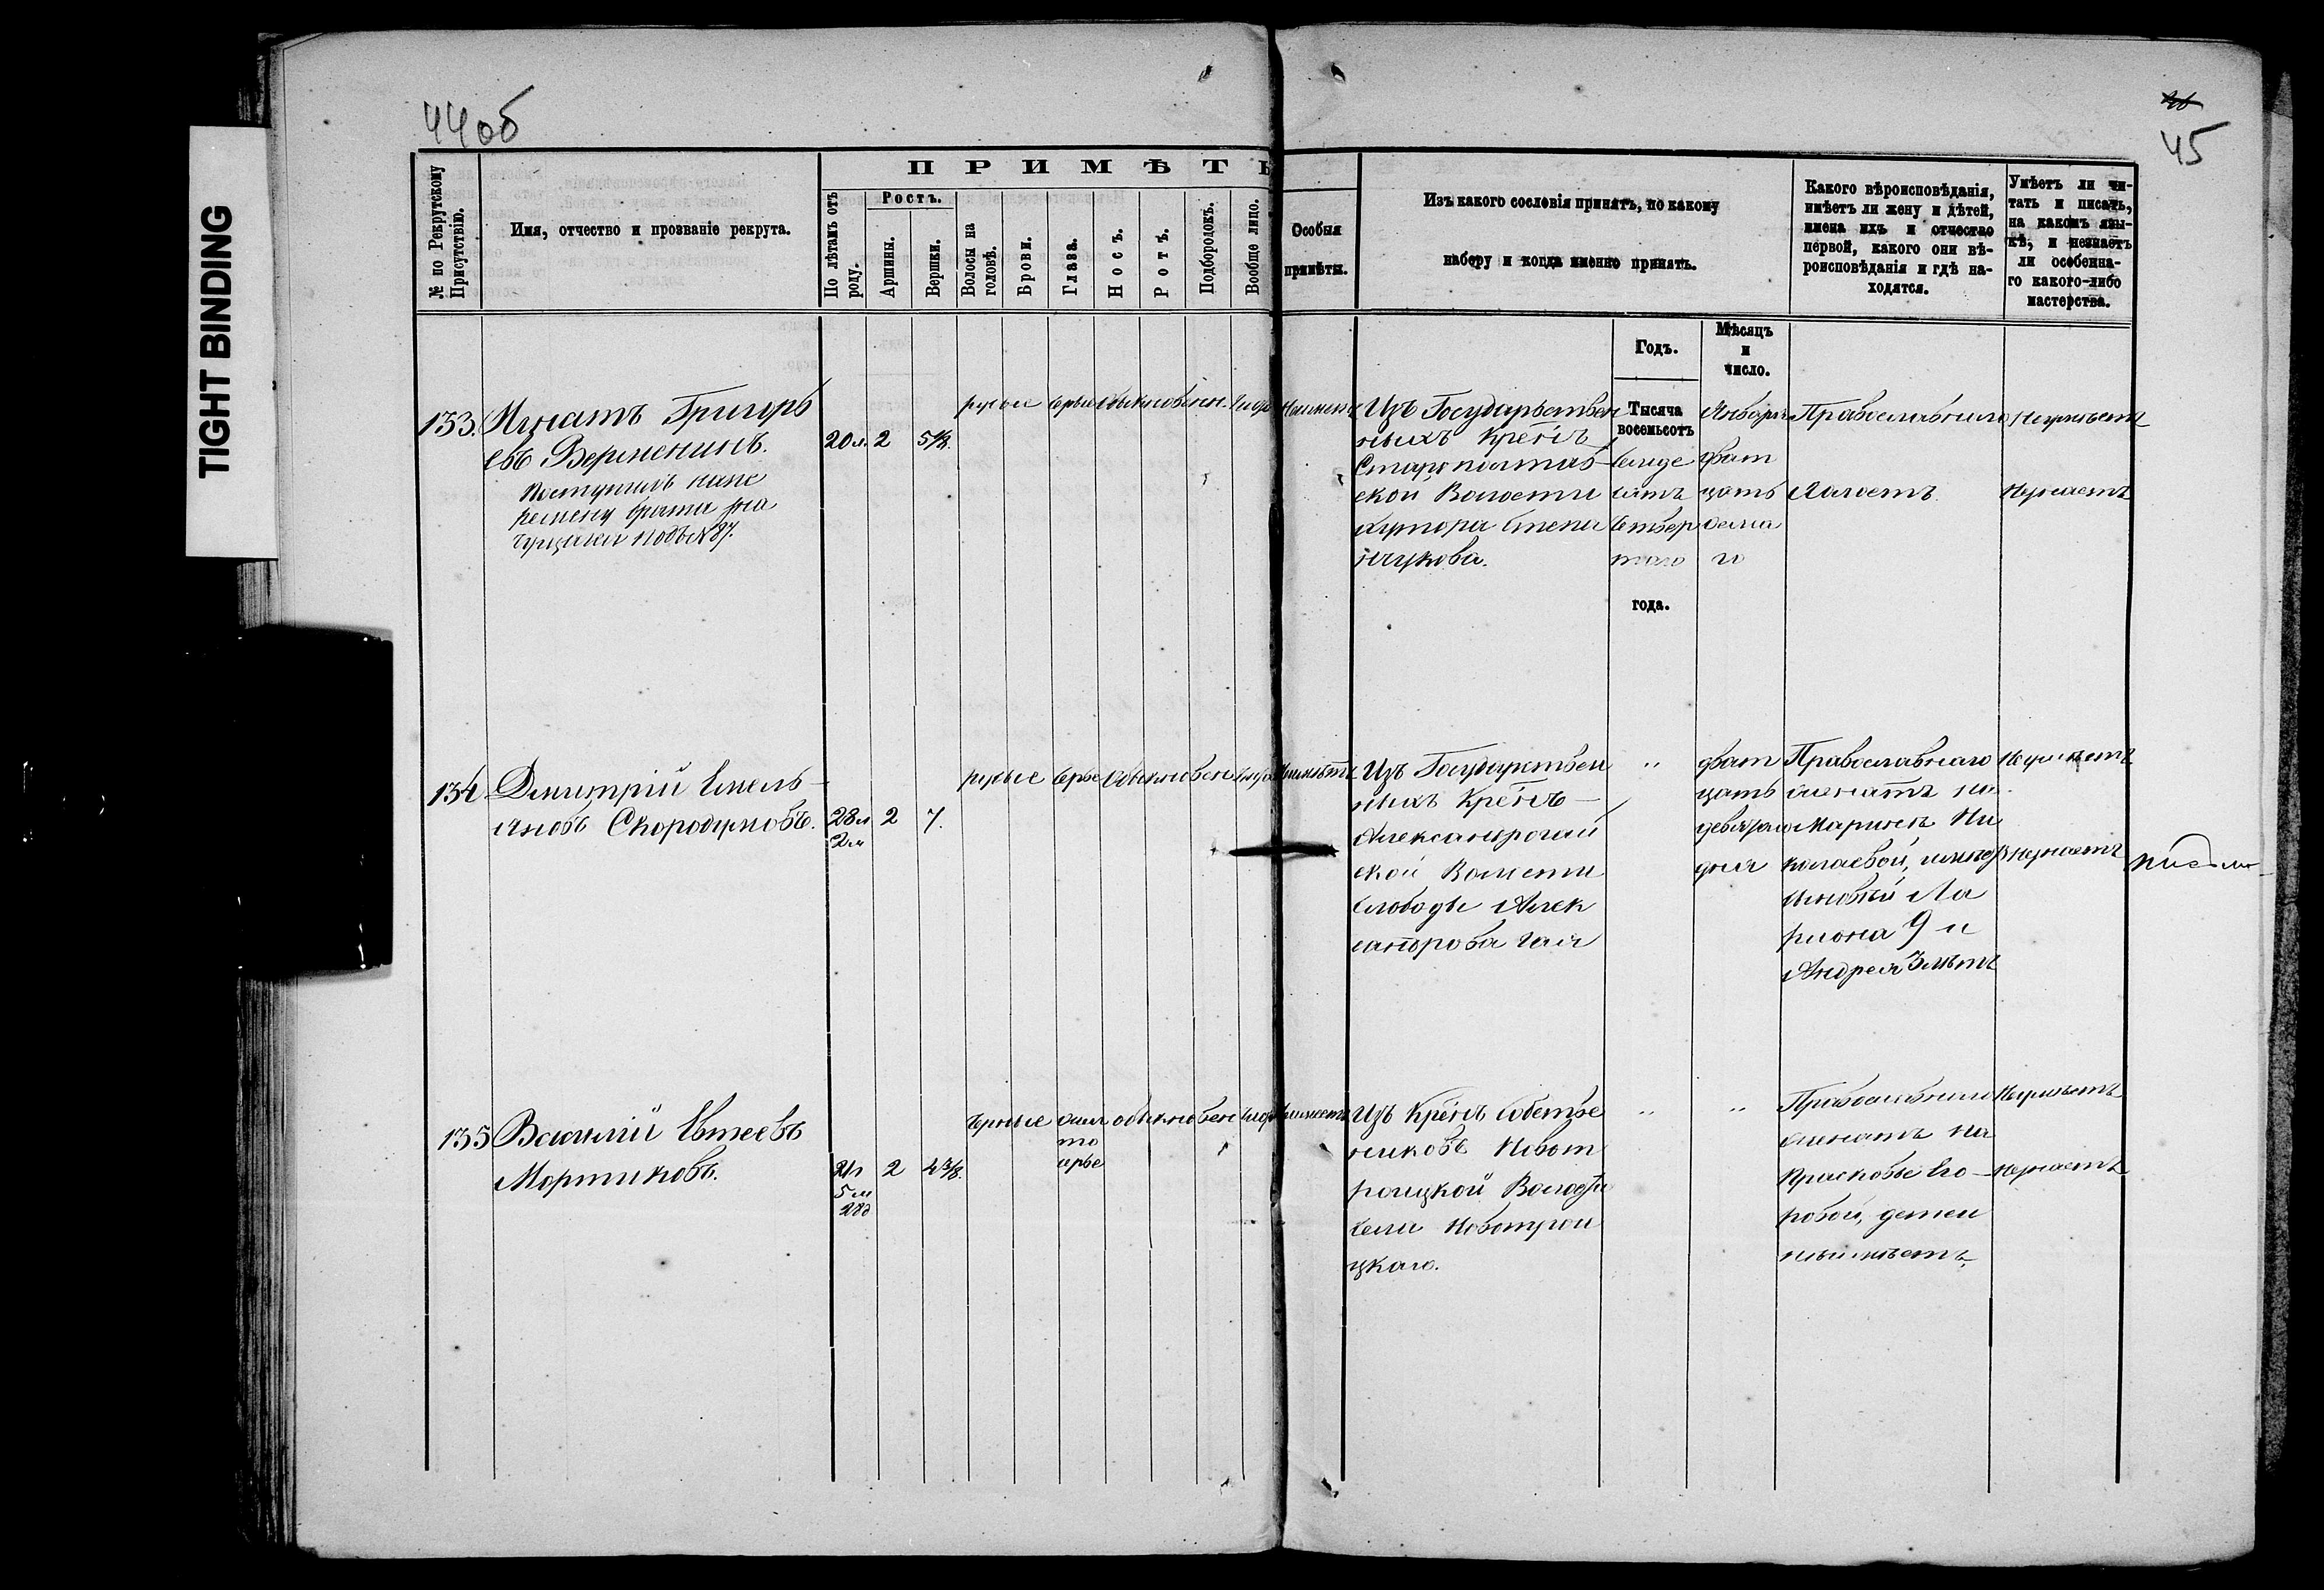 44об
45
TIGHT BINDING
ПРИМѢТЫ
№ по Рекрутскому Присутствію.
Имя, отчество и прозваніе рекрута.
По лѣтамъ отъ роду.
Ростъ.
Аршины.
Вершки.
Волосы на головѣ.
Брови.
Глаза.
Носъ.
Ротъ.
Подбородокъ.
Вообще лицо.
Особыя
примѣты.
Изъ какого сословія принятъ, по какому
набору и когда именно принятъ.
Какого вѣроисповѣданія,
имѣетъ ли жену и дѣтей,
имена ихъ и отчество
первой, какого они вѣ-
роисповѣданія и гдѣ на-
ходятся.
Умѣетъ ли чи-
тать и писать,
на какомъ язы-
кѣ, и незнаетъ
ли особенна-
го какого-либо
мастерства.
Годъ.
Мѣсяцъ
и
число.
133. Игнатъ Григорь
евъ Верменинъ.
поступилъ
брата
подъ №87.
20 л. 2 5⅛.
русые серые обыкновен.
Изъ Государствен
ныхъ Крестнъ
Старополтав
ской Волости
хутора Степа
нчукова.
Тысяча
восемьсотъ
семьде
сятъ
четвер
таго
года.
Января
двад
цать
осьма
го
Православнаго
Холостъ
Неумѣетъ
Незнаетъ
134 Дмитрій Емель-
яновъ Скородумовъ.
28 л 2 7.
2 м
русые серые обыкновен
Изъ Государствен
ныхъ Крестнъ
Александрогай
ской Волости
Слободы Алек
сандрова гая
"
двад
цать
девятаго
дня
Православнаго
женатъ на
Маринѣ Ни
колаевой,
сыновей Ла
ріона 9 и
Андрея 3 лѣтъ
Неумѣетъ
незнаетъ
135 Василій Евтеевъ
Мортиковъ.
21 л 2 4⅜.
5 м
28 д
черные обыкновен
серые
Изъ Крестнъ собстве
никовъ Новот
роицкой Волости
села Новотрои
цкаго.
" "
Православнаго
женатъ на
Прасковье Его-
ровой, детей
неимѣетъ
Неумѣетъ
незнаетъ